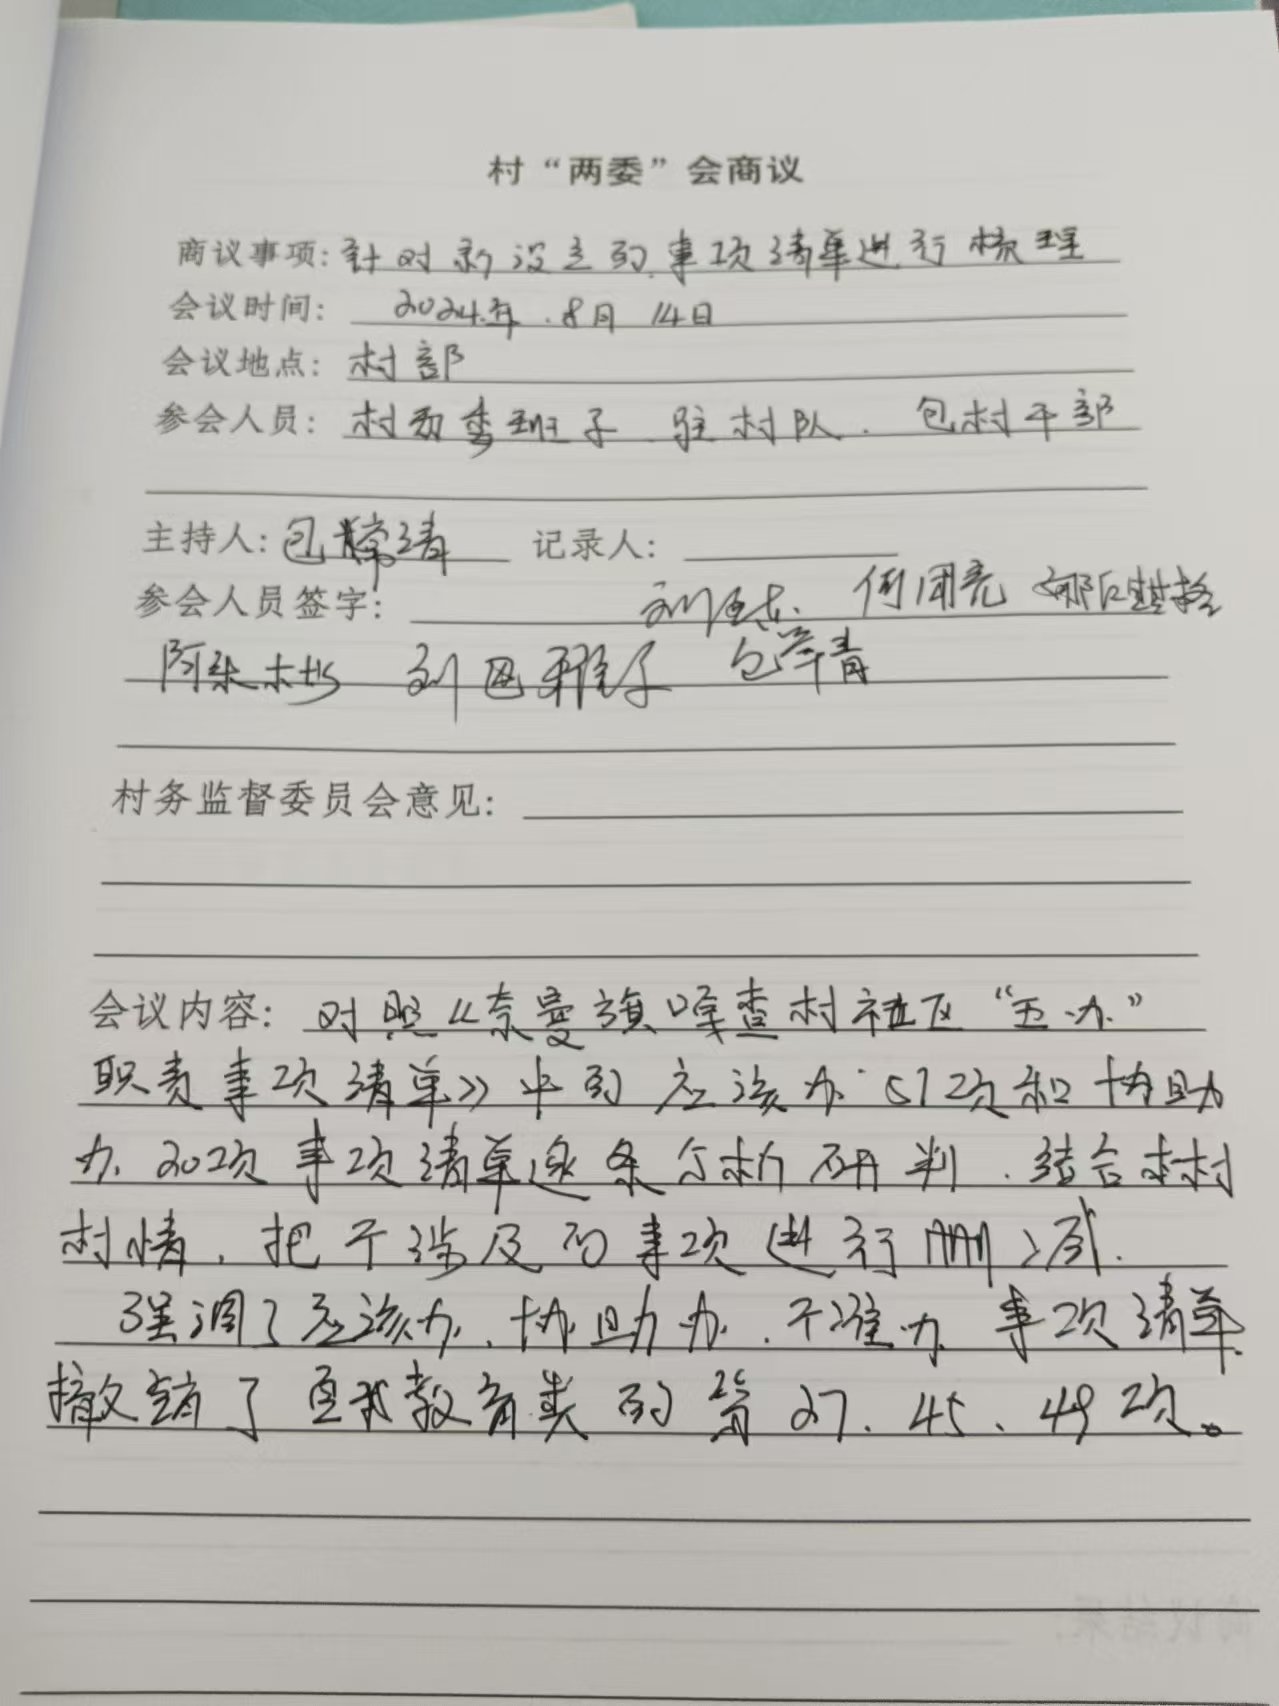 村“两委”会商议
商议事项：针对新设立的事项清单进行梳理
会议时间： 2024年.8月14日
会议地点：村部
参会人员：村两委班子.驻村队.包村干部
主持人：包 记录人：
参会人员签字： 何周亮 娜仁
阿 刘 包
村务监督委员会意见：
会议内容：对照《奈曼旗嘎查村社区“五办”
职责事项清单》中的应该办57项和协助
办20项事项清单逐条分析研判.结合本村
村情，把不涉及的事项进行删减.
强调了应该办、协助办、不准办事项清单.
撤销了 教育类的第27、45、49项。